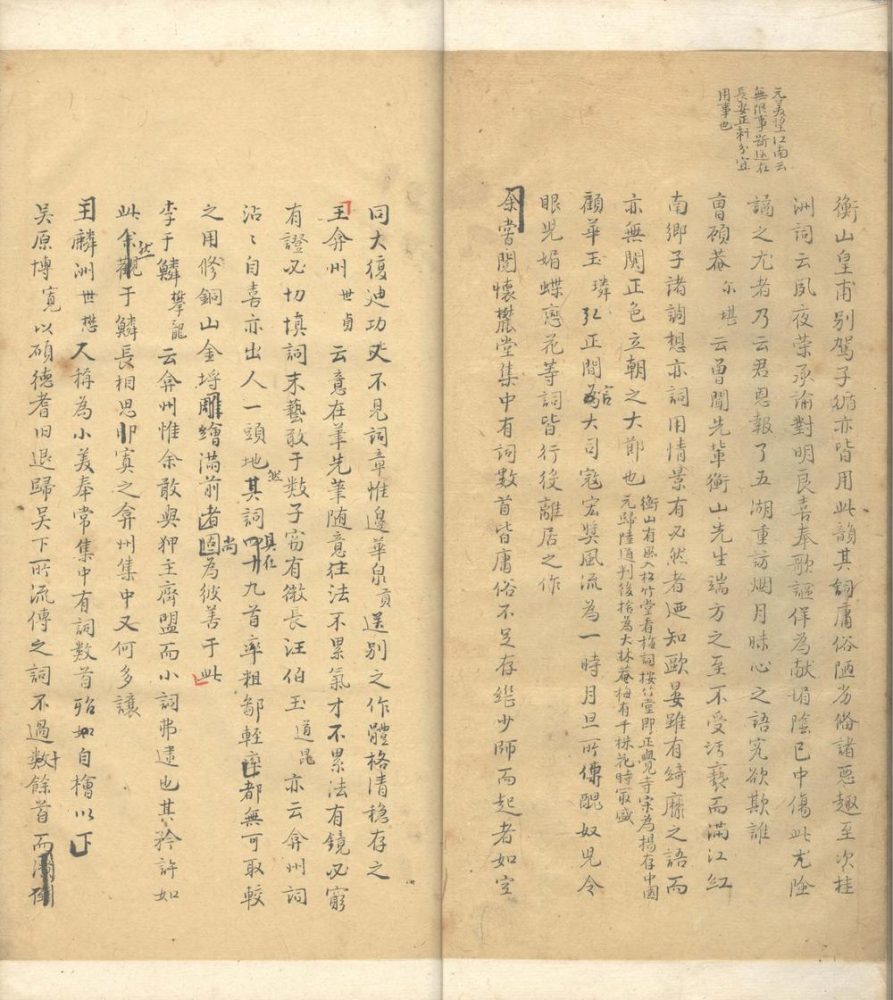 元美望江南云
無限事斷送在
長安正刺分宜
用事也
衡山皇甫別駕子循亦皆用此韻其詞庸俗陋劣俗諸惡趣至次桂
洲詞云夙夜榮承諭對明良喜奉歌謳佯為獻媚陰已中傷此尤險
譎之尤者乃云君恩報了五湖重訪烟月昧心之語究欲欺誰
曹碩菴尔堪云曾聞先輩衡山先生端方之至不受污褻而滿江紅
南鄉子諸調想亦詞用情景有必然者迺知歐晏雖有綺靡之語而
亦無関正色立朝之大節也衡山有風入松竹堂看梅詞按竹堂即正覺寺宋為楊存中園
元歸陸通判後捨為大林菴梅有千株花時最盛
顧華玉璘弘正間官為大司寇宏獎風流為一時月旦所傳醌奴兒令
眼兒媚蝶戀花等詞皆行後離居之作
余嘗閱懷麓堂集中有詞數首皆庸俗不足存繼少師而起者如空
同大復迪功文不見詞章惟邊華泉貢送別之作體格清穩存之
王弇州世貞云意在筆先筆随意往法不累氣才不累法有鏡必窮
有證必切填詞末藝敢于数子窃有微長汪伯玉道昆亦云弇州詞
沾沾自喜亦出人一頭地然其詞具在四十九首率粗鄙輕率都無可取較
之用修銅山金埒雕繪滿前者尚固為彼善于此
李于鱗攀龍云弇州惟余敢與狎主齊盟而小詞弗逮也其矜許如
此然余觀于鱗長相思卯寞之弇州集中又何多讓
王麟洲世懋人稱為小美奉常集中有詞數首殆如自檜以下
吳原博寬以碩德耆旧退歸吴下所流傳之詞不過数十餘首而潦倒